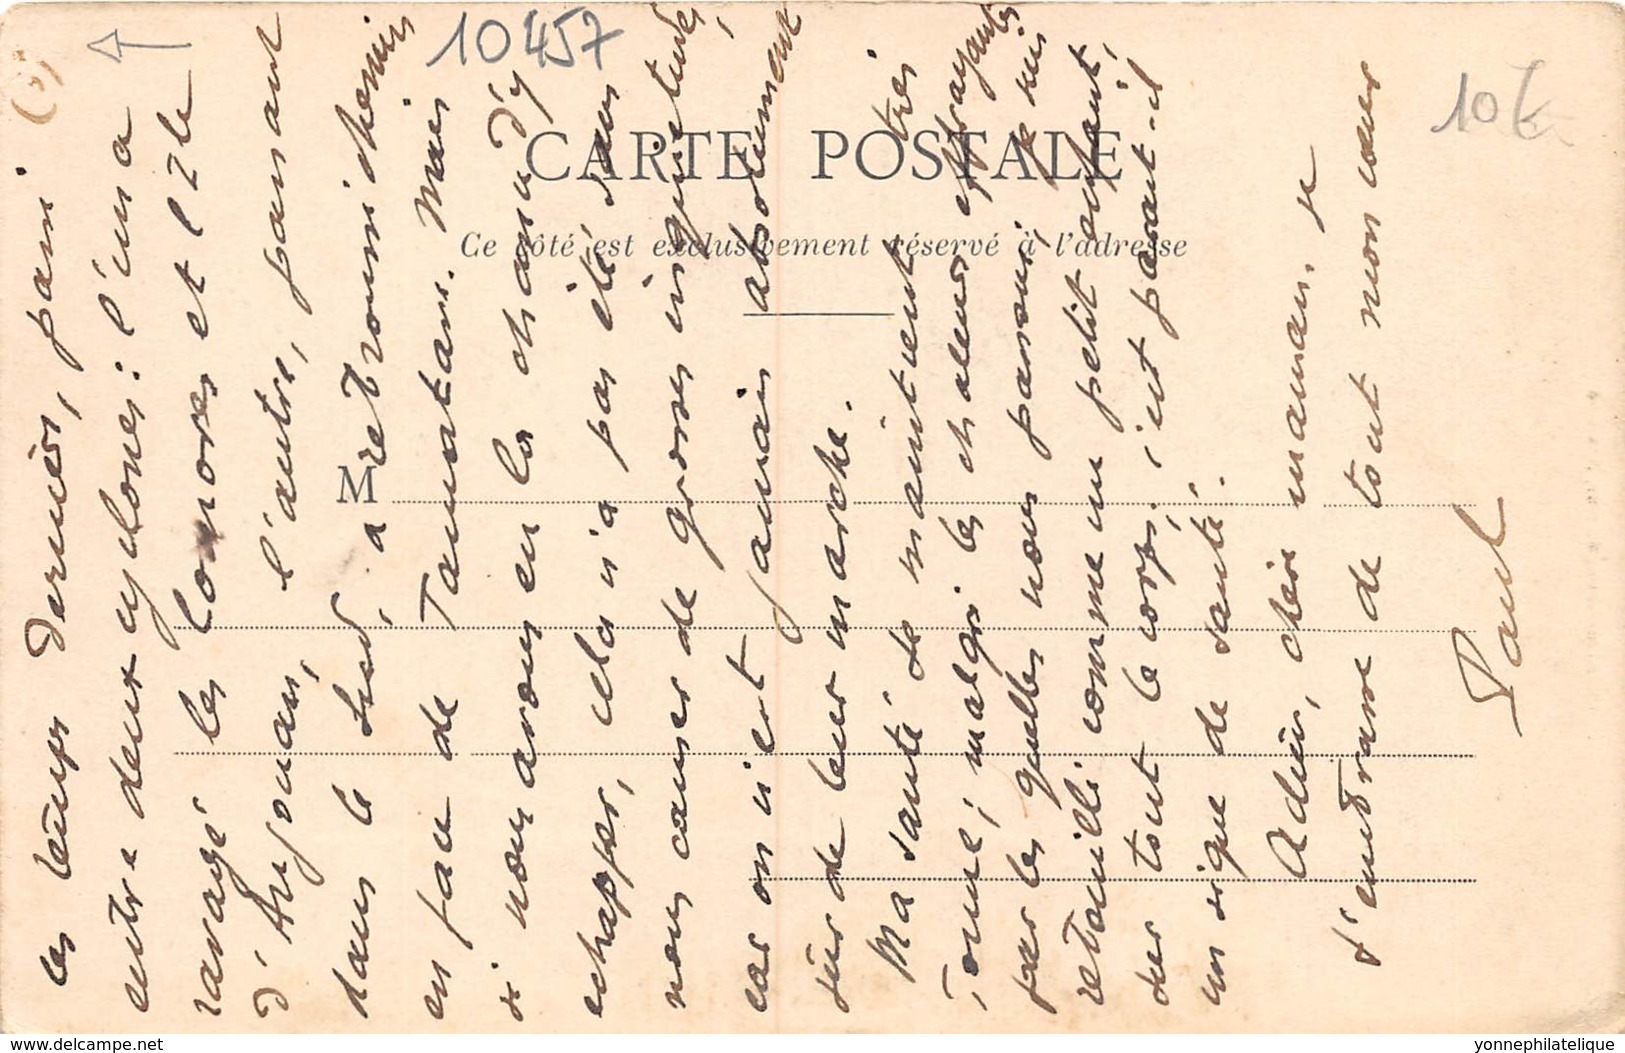 (3)
10457
10 €
CARTE POSTALE
Ce côté est exclusivement réservé à l'adresse
M
les temps derniers, parmi
entre deux cyclones: l'un a
ravagé les Comores et l'Ile
d'Anjouan, l'autre, passant
dans le Sud, a
en face de Tamatave. Mais
si nous avons eu la chance d'y
echapper, cela n'a pas été sans
nous causer de grosses inquiétudes,
car on n'est jamais absolument
sûr de leur marche.
Ma santé se maintient très
bonne, malgré les chaleurs effrayantes
par lesquelles nous passons; je suis
comme un petit enfant,
sur tout le corps; c'est parait-il
un signe de santé.
Adieu, chère maman, je
t'embrasse de tout mon cœur
Paul
www.delcampe.net
yonnephilatelique